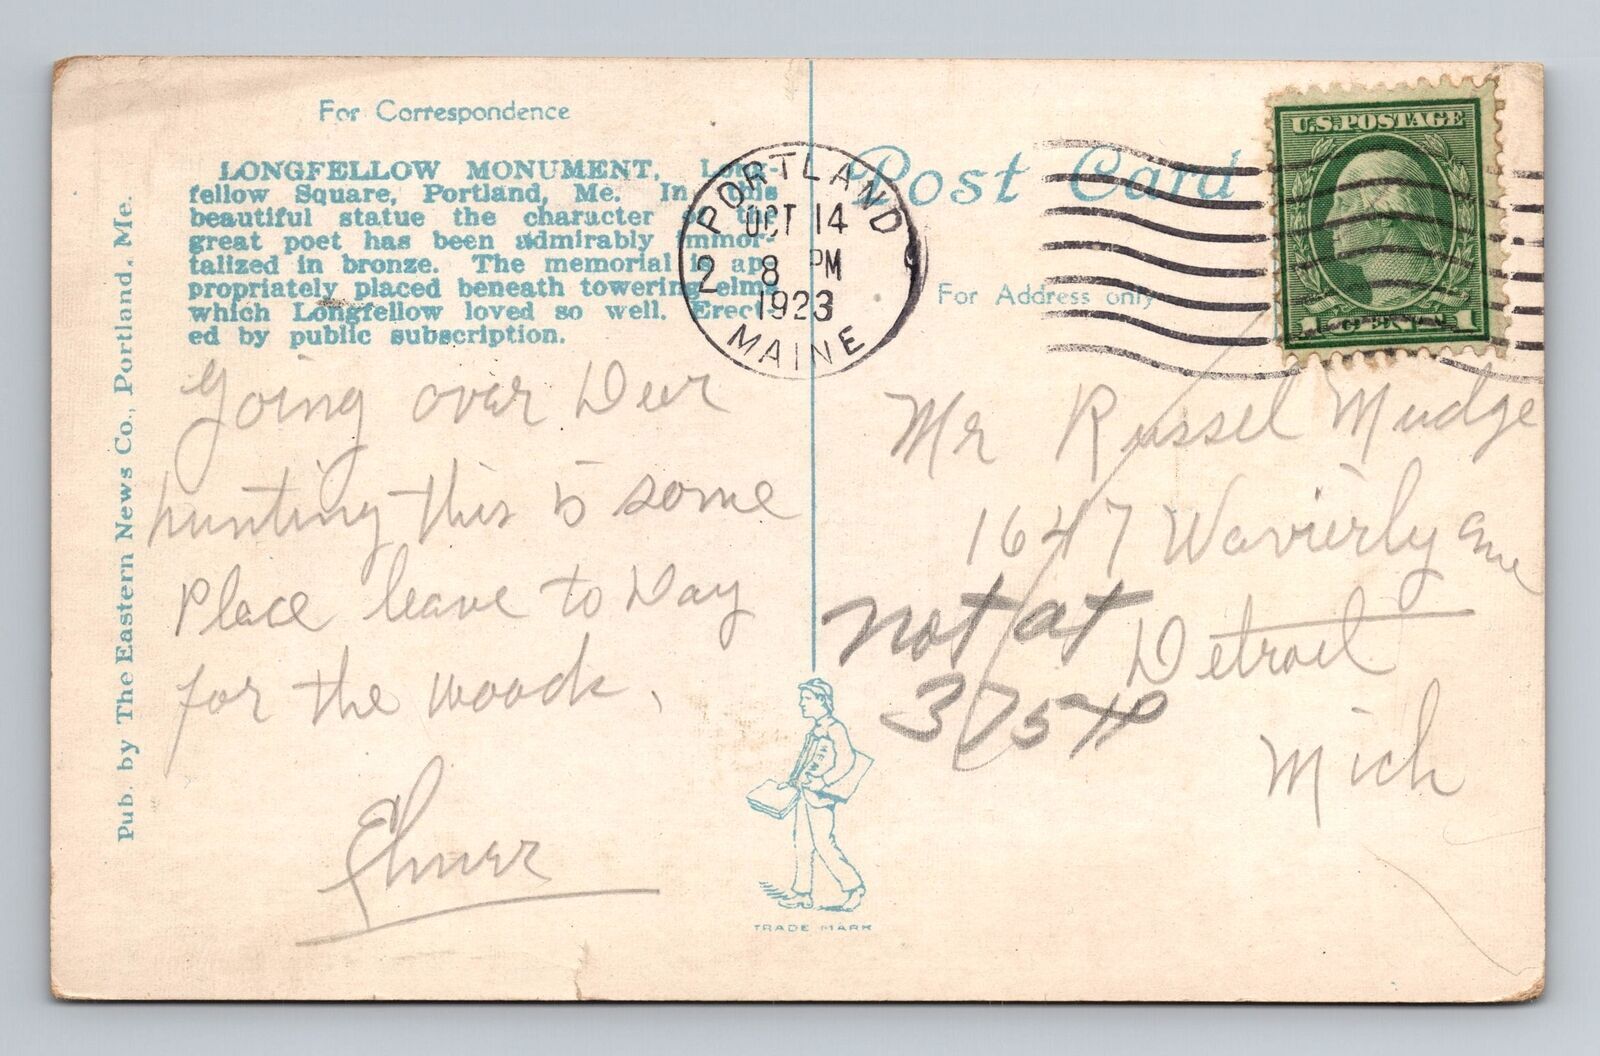 For Correspondence
LONGFELLOW MONUMENT, Long-
fellow Square, Portland, Me. In this
beautiful statue the character of the
great poet has been admirably immor-
talized in bronze. The memorial is ap-
propriately placed beneath towering elms
which Longfellow loved so well. Erect-
ed by public subscription.
Pub. by The Eastern News Co., Portland, Me.
Going over Deer
hunting this is some
Place leave to Day
for the woods.
Elmer
PORTLAND
OCT 14
2 8 PM
1923
MAINE
Post Card
For Address only
U.S. POSTAGE
1 CENT 1
Mr Russel Mudge
1647 Wavierly Ave
Detroit
Mich
not at
375
NEWS
TRADE MARK